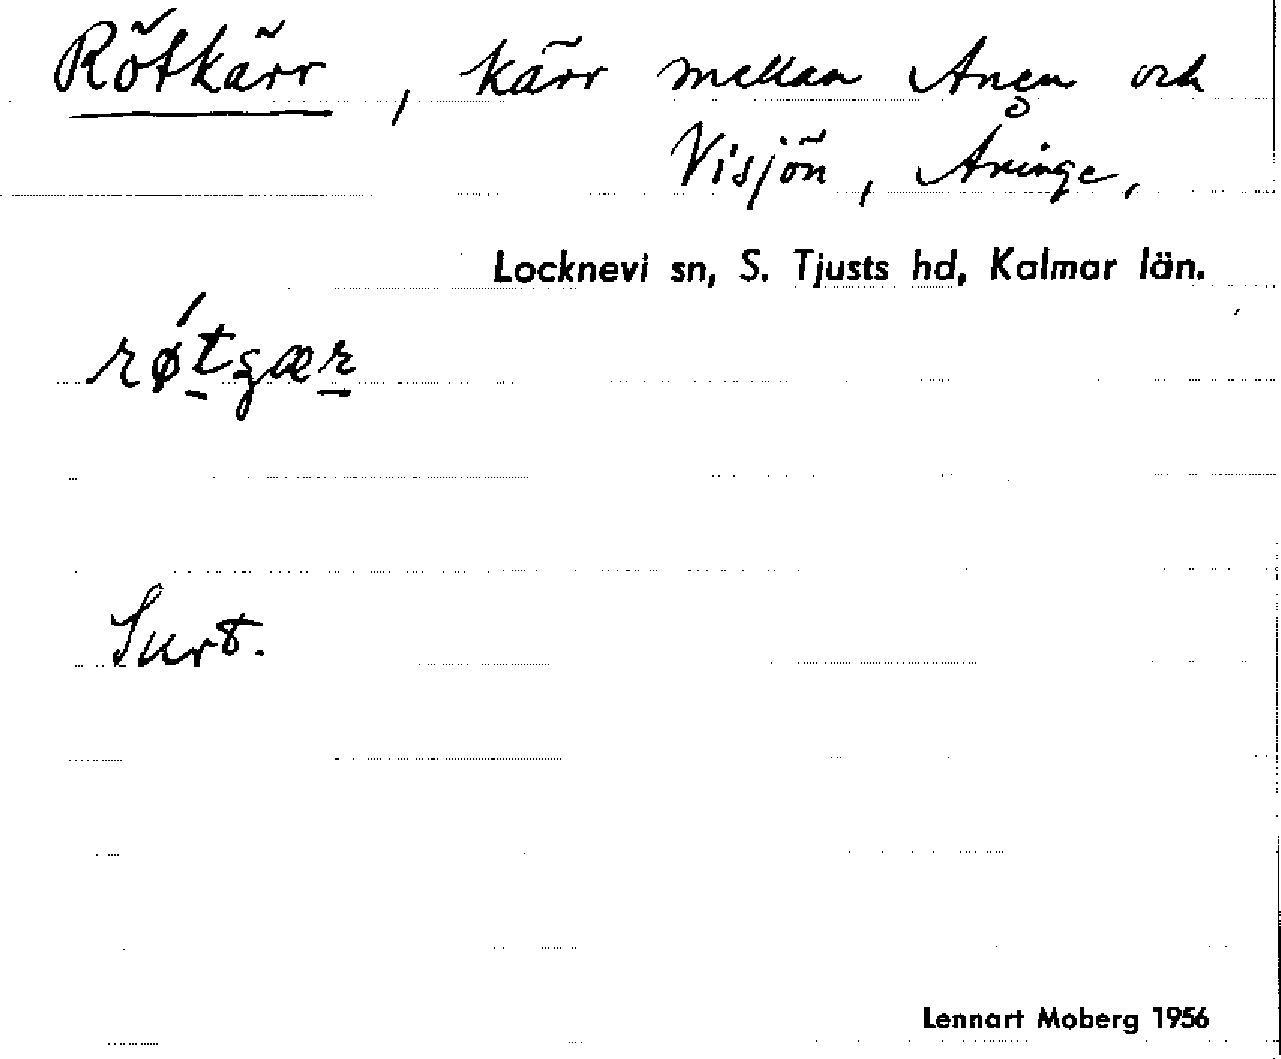 Rötkärr, kärr mellan Ången och
Visjön, Aringe,
Locknevi sn, S. Tjusts hd, Kalmar län.
Surt.
Lennart Moberg 1956